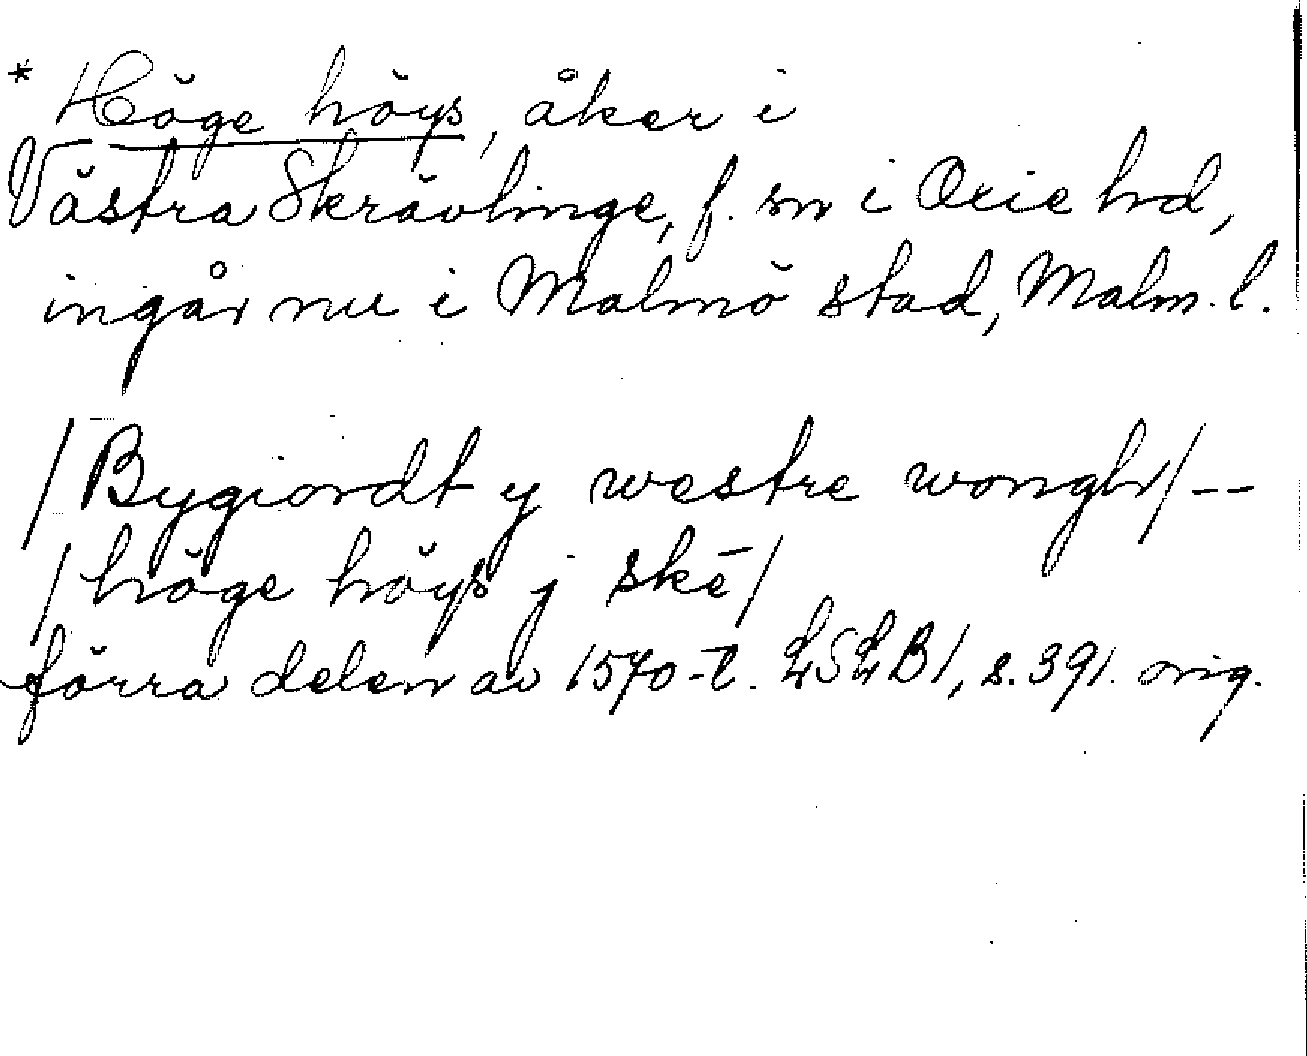 * Höge höys, åker i
Västra Skrävlinge, f. sn i Oxie hd,
ingår nu i Malmö stad, Malm. l.
/Bygiordt y westre wongh/--
/höge höys j skē/
förra delen av 1570-t. LSLB1, s. 391. orig.